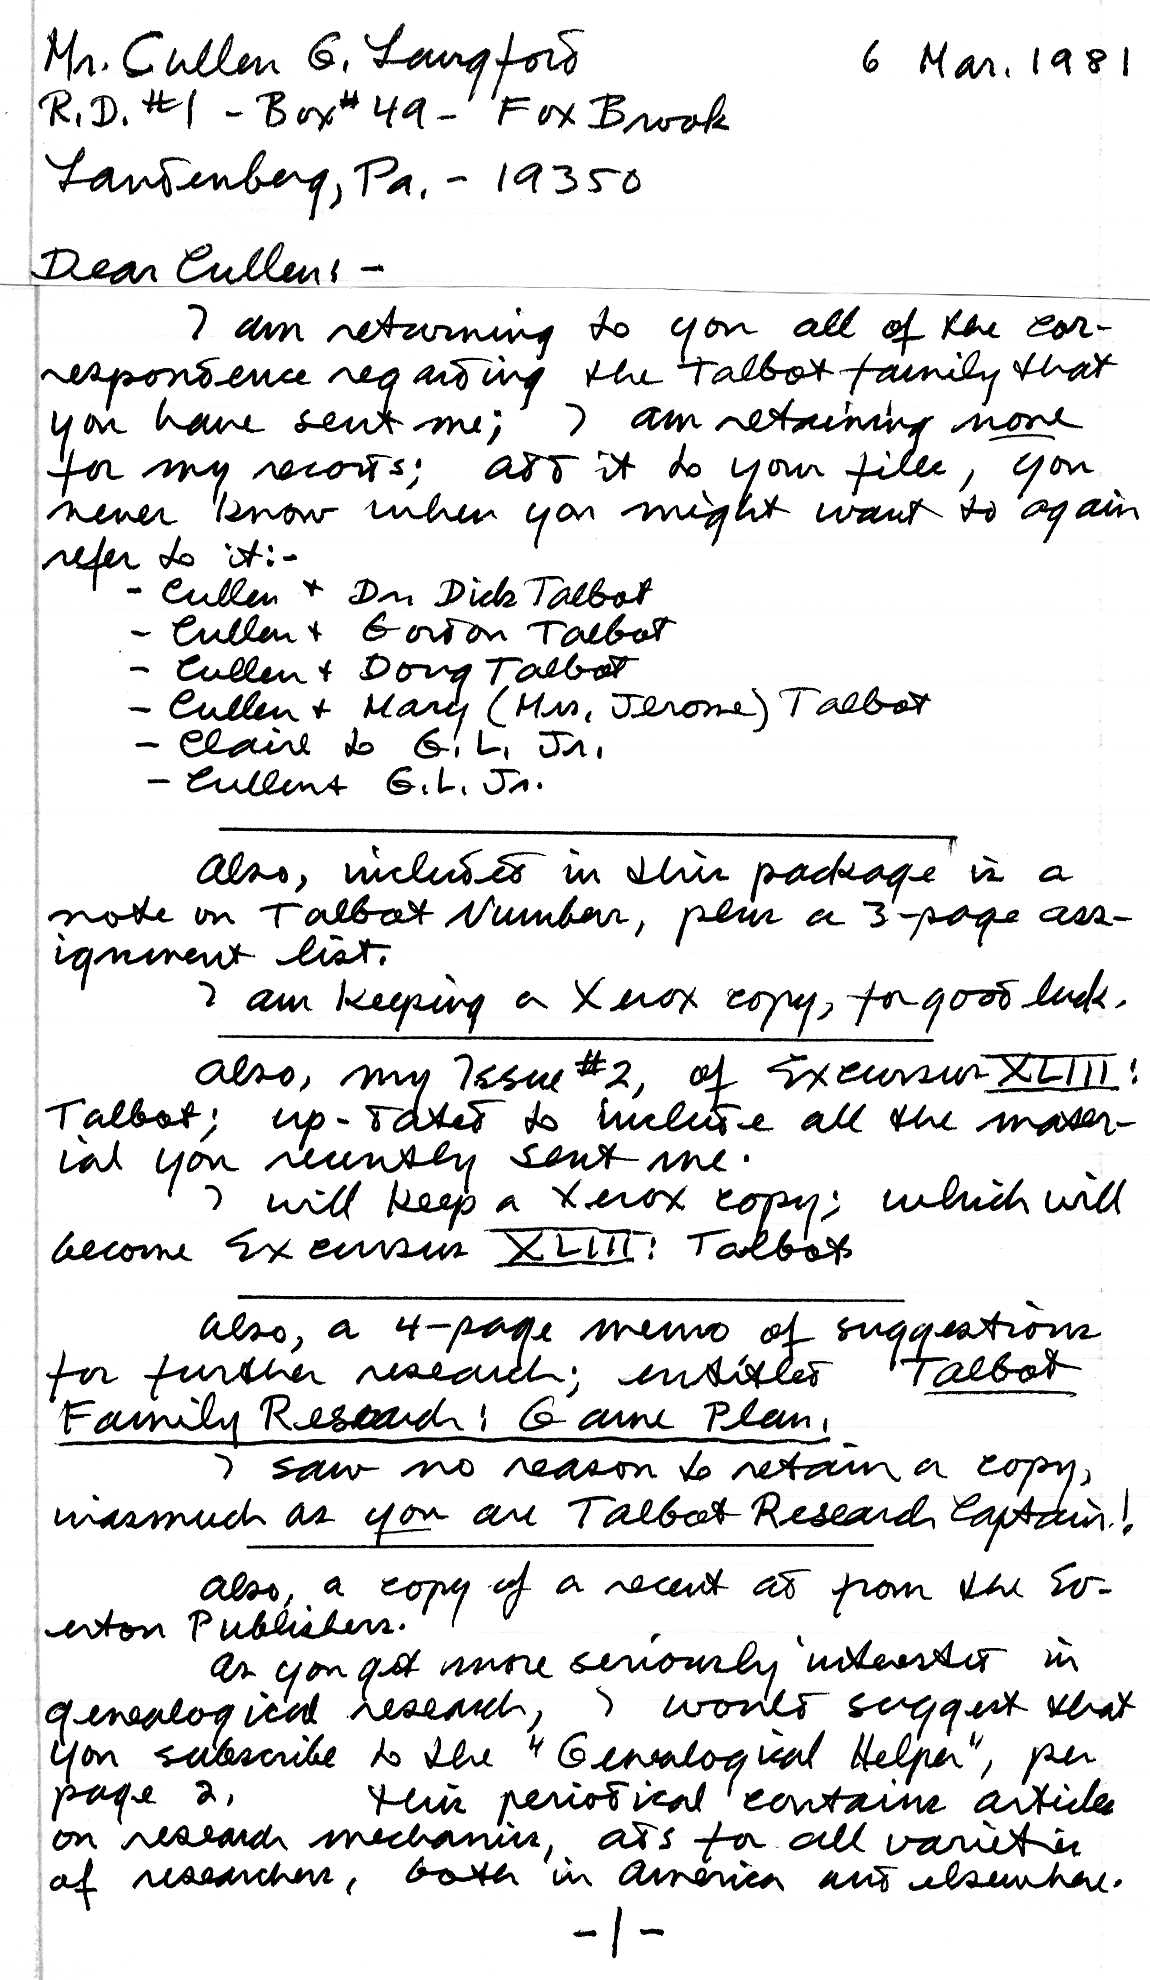 Mr. Cullen G. Langford 6 Mar. 1981
R.D. #1 - Box #49 - Fox Brook
Landenberg, Pa. - 19350
Dear Cullen: -
I am returning to you all of the cor-
respondence regarding the Talbot family that
you have sent me; I am retaining none
for my records; add it to your files, you
never know when you might want to again
refer to it:-
- Cullen + Dr. Dick Talbot
- Cullen + Gordon Talbot
- Cullen + Doug Talbot
- Cullen + Mary (Mrs. Jerome) Talbot
- Claire to G.L. Jr.
- Cullen + G.L. Jr.
Also, included in this package is a
note on Talbot Numbers, plus a 3-page ass-
ignment list.
I am keeping a Xerox copy, for good luck.
Also, my Issue #2, of Excursus XLIII:
Talbot; up-dated to include all the mater-
ial you recently sent me.
I will keep a Xerox copy; which will
become Excursus XLIII: Talbot
Also, a 4-page memo of suggestions
for further research; entitled Talbot
Family Research: Game Plan.
I saw no reason to retain a copy,
inasmuch as you are Talbot Research Captain!
Also, a copy of a recent ad from the Ev-
erton Publishers.
As you get more seriously interested in
genealogical research, I would suggest that
you subscribe to the "Genealogical Helper", per
page 2. This periodical contains articles
on research mechanics, ads for all varieties
of researchers, both in America and elsewhere.
-1-